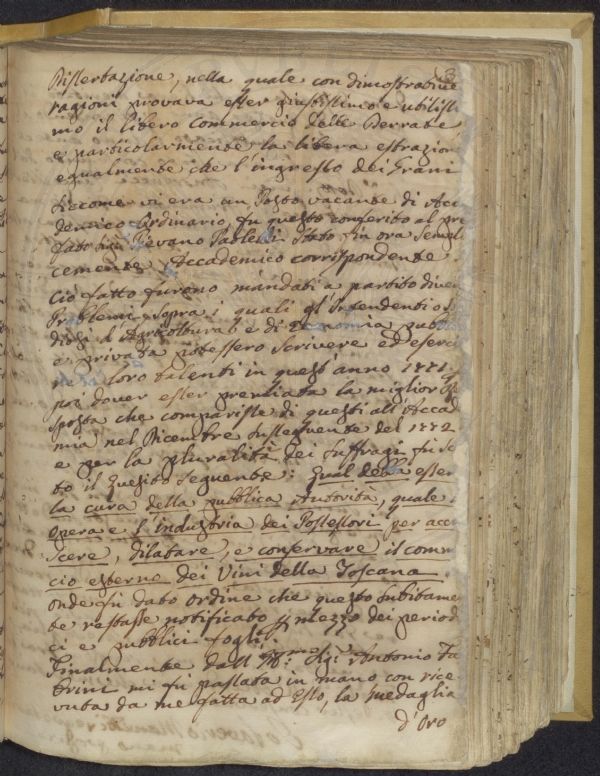 Dissertazione, nella quale con dimostrative
ragioni provava esser giustissimo e utilissi
mo il libero commercio delle Derrate,
e particolarmente la libera estrazione
egualmente che l'ingresso dei Grani
Siccome vi era un Posto vacante di Acca
demico Ordinario fu questo conferito al pre
fato Sig. Pievano Paoletti Stato fin ora Sempli
cemente Accademico corrispondente.
Ciò fatto furono mandati a partito diver
Problemi sopra i quali gl'Intendenti o S
diosi d'Agricoltura e di Economia pubbl
e privata potessero scrivere ed eserci
re i loro talenti in quest'anno 1771
poi dover esser premiata la miglior Ri
sposta che comparisse di questi all'Accad
mia nel Dicembre susseguente del 1772
e per la pluralità dei suffragi fu scel
to il Quesito seguente: Qual debba esser
la cura della pubblica Autorità, quale l'
opera e l'industria dei Possessori per accre
scere, dilatare, e conservare il comm
cio esterno dei Vini della Toscana.
onde fu dato ordine che questo subitame
te restasse notificato p mezzo dei period
ci e pubblici fogli.
Finalmente dall'Ill.mo Sig. Antonio Fa
brini mi fu passata in mano con rice
vuta da me fatta ad Esso, la medaglia
d'Oro